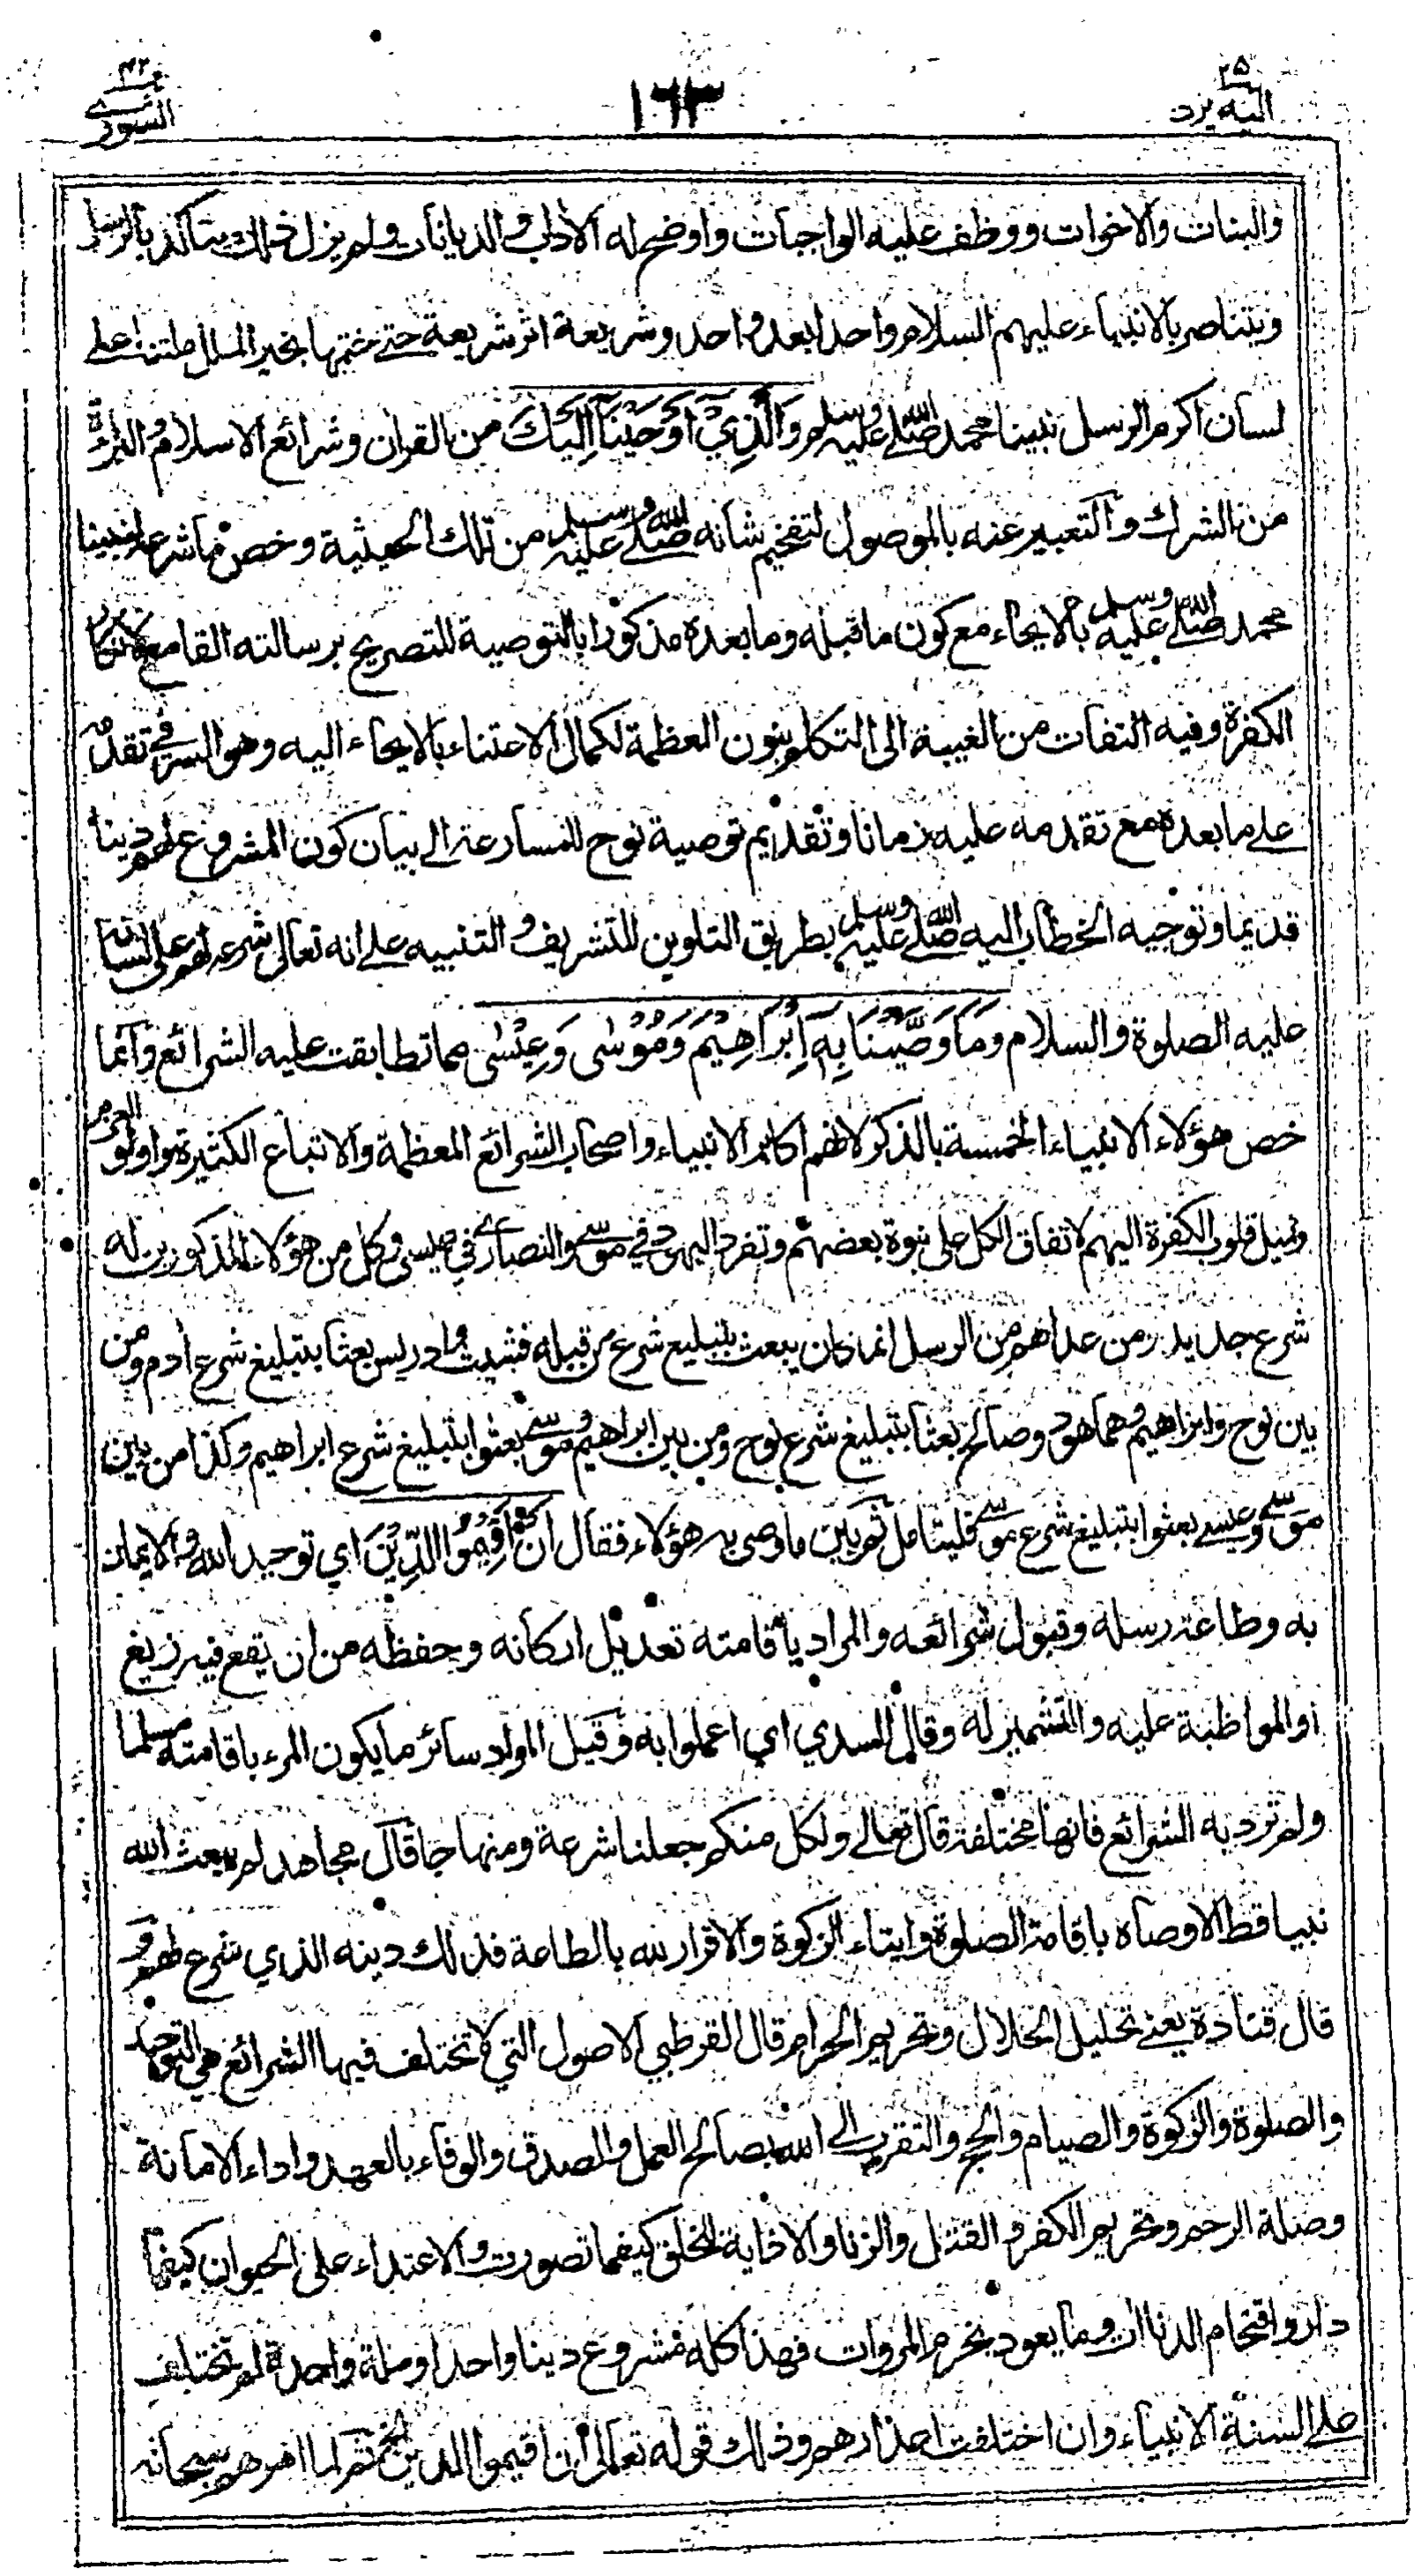 ٢٥
اليه يرد
١٦٣
٤٢
الشورى
والبنات والاخوات ووظف عليه الواجبات واوضح له الآداب والديانات ولم يزل ذلك يتأكد بالرسل
ويتناصر بالانبياء عليهم السلام واحدا بعد واحد وشريعة اثر شريعة حتى ختمها بخير الملل ملتنا على
لسان اكرم الرسل نبينا محمد صلى الله عليه وسلم وَالَّذِيْ اَوْحَيْنَآ اِلَيْكَ من القران وشرائع الاسلام والبراءة
من الشرك والتعبير عنه بالموصول لتفخيم شانه صلى الله عليه وسلم من تلك الحيثية وخص ما شرعه لنبينا
محمد صلى الله عليه وسلم بالايحاء مع كون ما قبله وما بعده مذكورا بالتوصية للتصريح برسالته القامع لانكار
الكفرة وفيه التفات من الغيبة الى التكلم بنون العظمة لكمال الاعتناء بالايحاء اليه وهو السر في تقدمه
على ما بعده مع تقدمه عليه زمانا وتقديم توصية نوح للمسارعة الى بيان كون المشروع لهم دينا
قديما وتوجيه الخطاب اليه صلى الله عليه وسلم بطريق التلوين للتشريف والتنبيه على انه تعالى شرعه لهم على لسانه
عليه الصلوة والسلام وَمَا وَصَّيْنَا بِهٖٓ اِبْرَاهِيْمَ وَمُوْسٰى وَعِيْسٰى مما تطابقت عليه الشرائع وانما
خص هؤلاء الانبياء الخمسة بالذكر لانهم اكابر الانبياء واصحاب الشرائع المعظمة والاتباع الكثيرة واولو العزم
وتميل قلوب الكفرة اليهم لاتفاق الكل على نبوة بعضهم وتفرد اليهود في موسى والنصارى في عيسى وكل من هؤلاء المذكورين له
شرع جديد ومن عداهم من الرسل انما كان يبعث بتبليغ شرع من قبله فشيث وادريس بعثا بتبليغ شرع ادم ومن
بين نوح وابراهيم وهما هود وصالح بعثا بتبليغ شرع نوح ومن بين ابراهيم وموسى بعثوا بتبليغ شرع ابراهيم وكذا من بين
موسى وعيسى بعثوا بتبليغ شرع موسى فليتامل ثم بين ما وصى به هؤلاء فقال اَنْ اَقِيْمُوا الدِّيْنَ اي توحيد الله والايمان
به وطاعة رسله وقبول شرائعه والمراد باقامته تعديل اركانه وحفظه من ان يقع فيه زيغ
او المواظبة عليه والتشمير له وقال السدي اي اعملوا به وقيل المراد سائر ما يكون المرء باقامته مسلما
ولم ترد به الشرائع فانها مختلفة قال تعالى ولكل منكم جعلنا شرعة ومنهاجا قال مجاهد لم يبعث الله
نبيا قط الا وصاه باقامة الصلوة وايتاء الزكوة والاقرار لله بالطاعة فذلك دينه الذي شرع لهم و
قال قتادة يعنى تحليل الحلال وتحريم الحرام قال القرطبي الاصول التي لا تختلف فيها الشرائع هي التوحيد
والصلوة والزكوة والصيام والحج والتقرب الى الله بصالح العمل والصدق والوفاء بالعهد واداء الامانة
وصلة الرحم وتحريم الكفر والقتل والزنا والاذاية للخلق كيفما تصورت والاعتداء على الحيوان كيفما
دار واقتحام الدناآت وما يعود بخرم المروات فهذا كله مشروع دينا واحدا وملة واحدة لم تختلف
على السنة الانبياء وان اختلفت اعذارهم وذلك قوله تعالى ان اقيموا الدين الخ ثم لما امرهم سبحانه